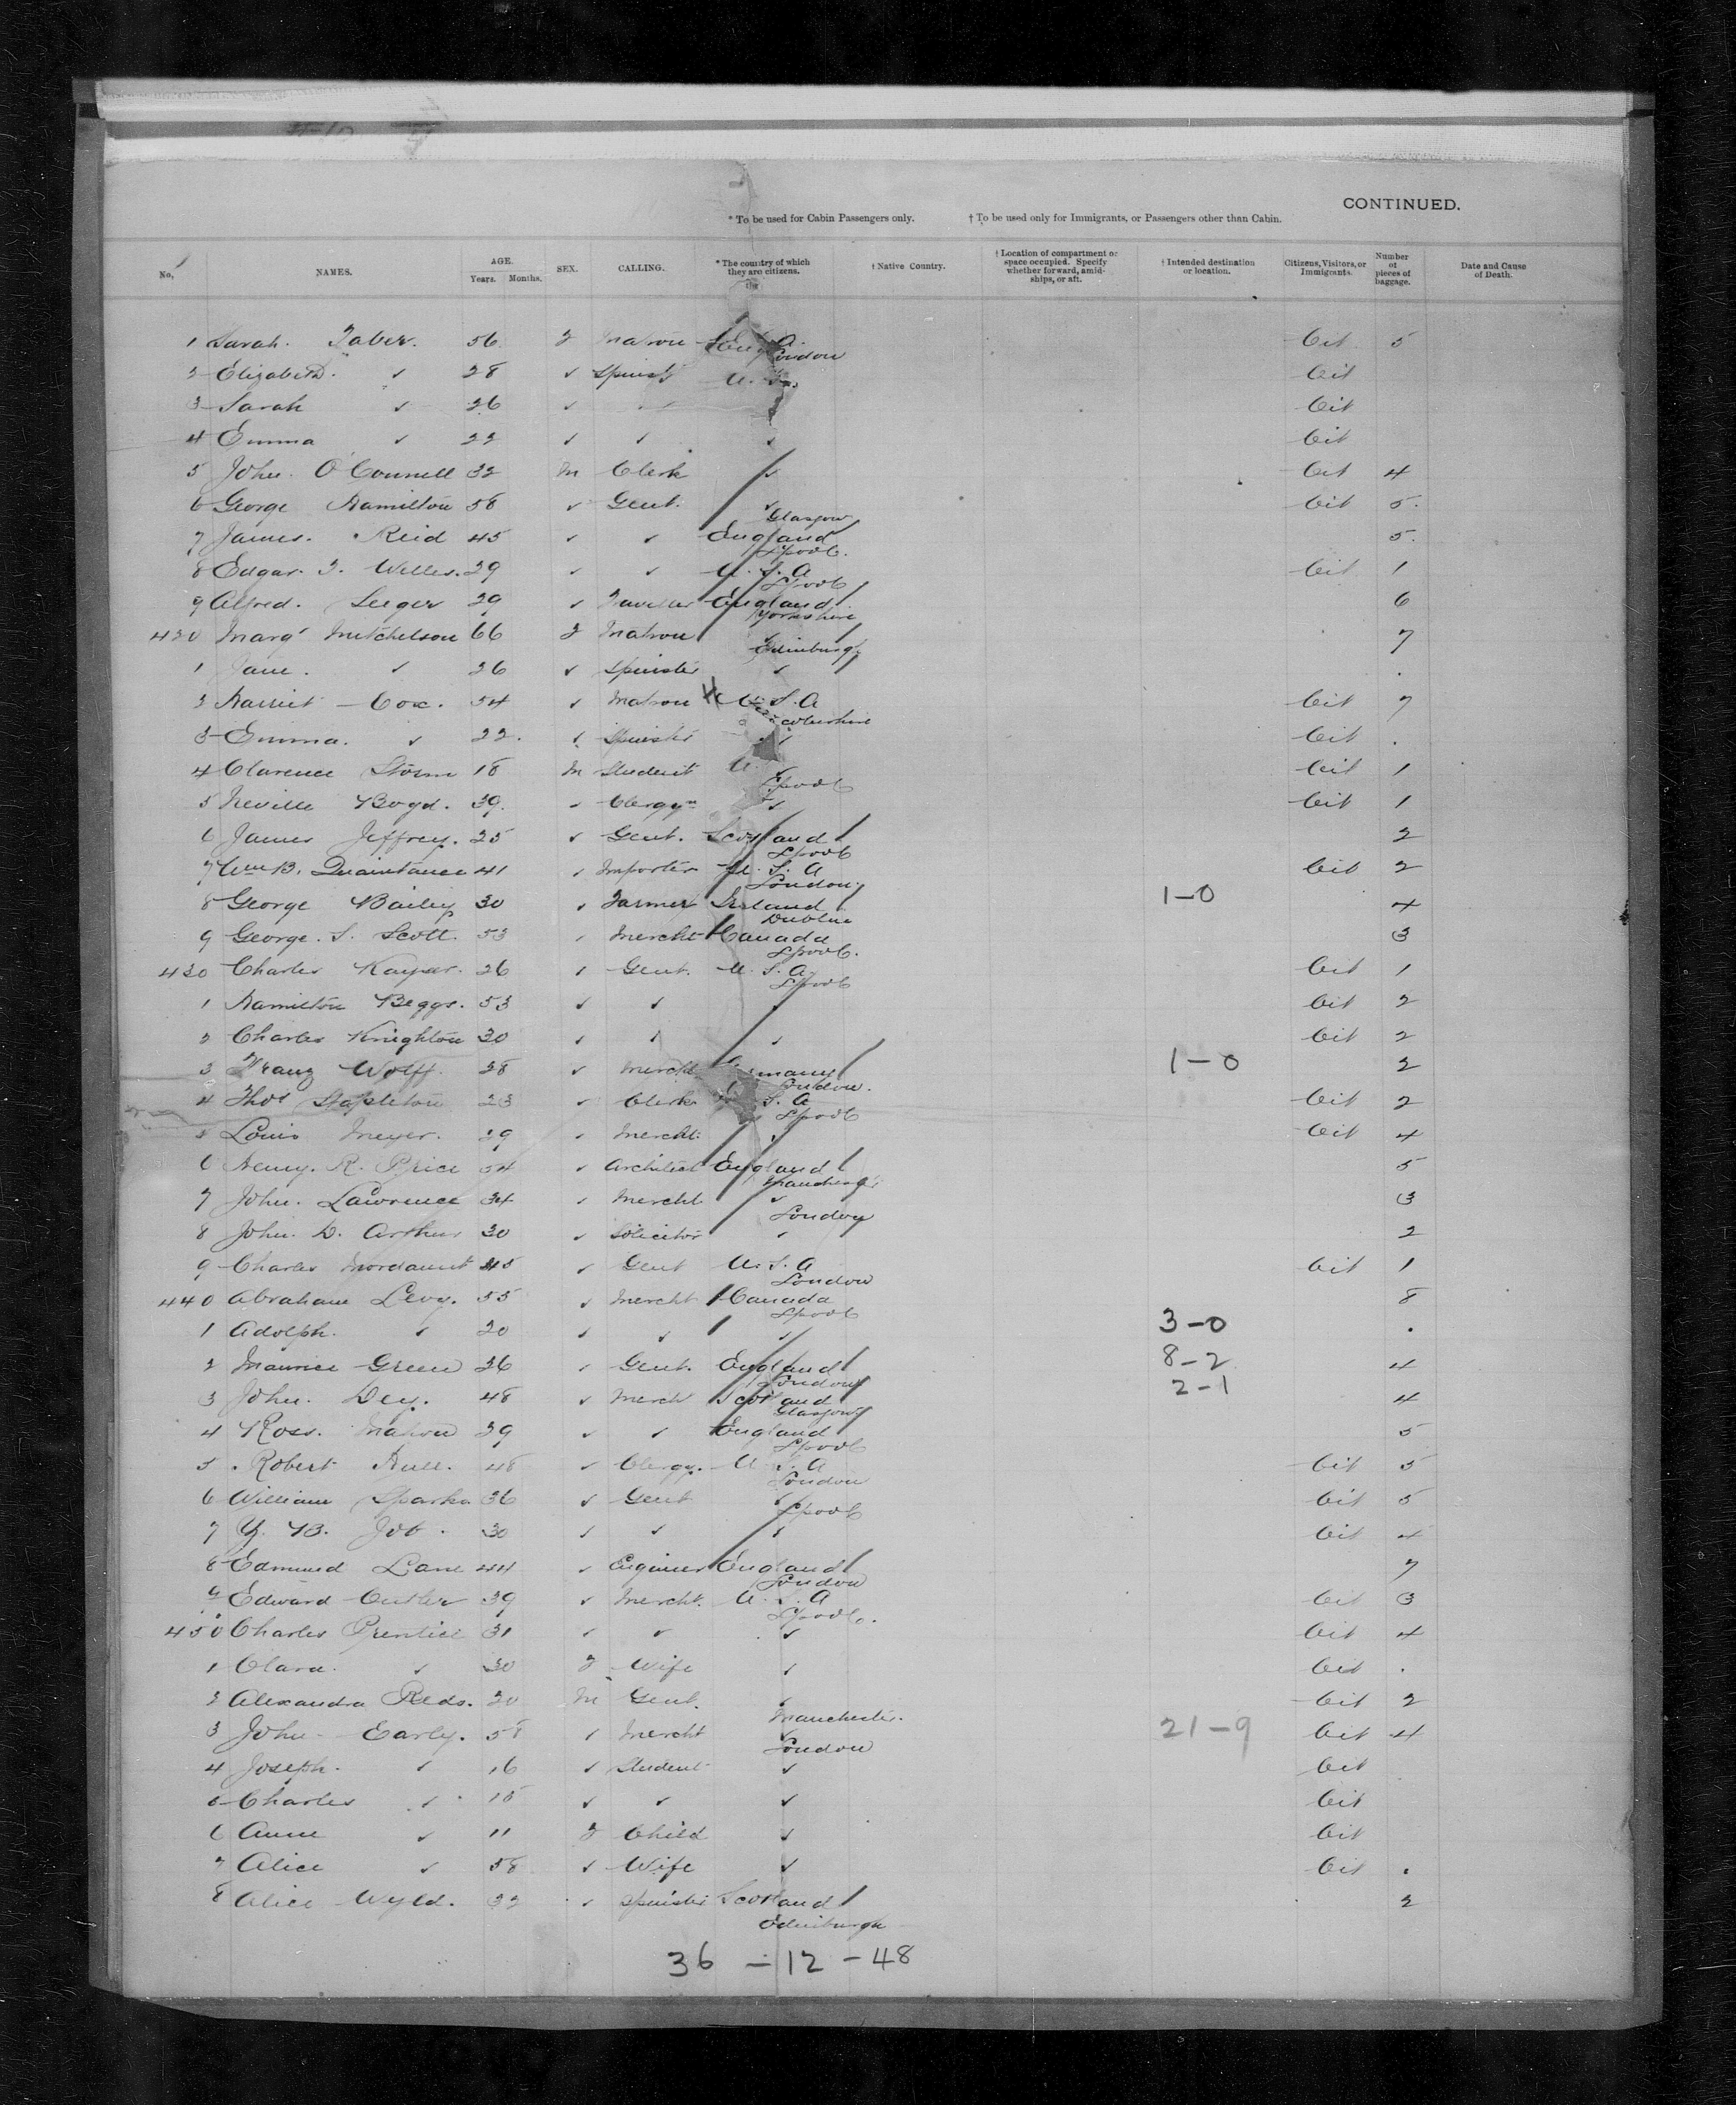 CONTINUED.
* To be used for Cabin Passengers only. † To be used only for Immigrants, or Passengers other than Cabin.
No. NAMES. AGE. Years. Months. SEX. CALLING. * The country of which they are citizens. † Native Country. † Location of compartment or space occupied. Specify whether forward, amidships, or aft. † Intended destination or location. Citizens, Visitors, or Immigrants. Number of pieces of baggage. Date and Cause of Death.
1 Sarah. Taber. 56 F Matron Cit 5
London
2 Elizabeth. ✓ 28 ✓ Spinstr U. S. Cit
3 Sarah ✓ 26 ✓ Cit
4 Emma ✓ 22 ✓ ✓ ✓ Cit
5 John. O'Connell 32 M Clerk ✓ Cit 4
6 George Hamilton 58 ✓ Gent. ✓ Cit 5.
Glasgow
7 James. Reid 45 ✓ ✓ England 5.
Lpool.
8 Edgar. T. Welles. 29 ✓ ✓ U. S. A Cit 1
Lpool
9 Alfred. Seeger 29 ✓ England 6
Yorkshire
420 Margt Mitchelson 66 F Matron ✓ 7
Edinburgh
1 Jane. ✓ 26 ✓ Spinster ✓ .
2 Harriet Cox. 54 ✓ Matron H U. S. A Cit 7
3 Emma. ✓ 22. ✓ Spinster ✓ Cit .
4 Clarence Storm 18 M Student U. ✓ Cit 1
Lpool
5 Neville Boyd. 39. ✓ Clergyn ✓ Cit 1
6 James Jeffrey. 25 ✓ Gent. Scotland 2
Lpool
7 Wm B. Quaintance 41 ✓ Importer U. S. A Cit 2
London
8 George Bailey 30 ✓ Farmer Ireland 1-0 4
Dublin
9 George. S. Scott. 53 ✓ Mercht Canada 3
Lpool.
430 Charles Kayser. 26 ✓ Gent. U. S. A. Cit 1
Lpool
1 Hamilton Beggs. 53 ✓ ✓ ✓ Cit 2
2 Charles Knighton 30 ✓ ✓ ✓ Cit 2
3 Franz Wolff. 28 ✓ Mercht Germany 1-0 2
London.
4 Thos Stapleton 23 ✓ Clerk U. S. A Cit 2
Lpool
5 Louis Meyer. 29 ✓ Mercht. ✓ Cit 4
6 Henry. R. Price 54 ✓ Architect England 5
7 John. Lawrence 34 ✓ Mercht ✓ 3
London
8 John. D. Arthur 30 ✓ Solicitor ✓ 2
9 Charles Mordaunt 45 ✓ Gent U. S. A Cit 1
London
440 Abraham Levy. 55 ✓ Mercht Canada 8
Lpool
1 Adolph. ✓ 20 ✓ ✓ ✓ 3-0 .
2 Maurice Green 26 ✓ Gent. England 8-2 4
London
3 John. Dey. 48 ✓ Mercht Scotland 2-1 4
Glasgow
4 Ross. Mahon 29 ✓ ✓ England 5
Lpool
5 Robert Hull. 48 ✓ Clergy. U. S. A Cit 5
London
6 William Sparks 36 ✓ Gent ✓ Cit 5
Lpool
7 Y. B. Job. 30 ✓ ✓ ✓ Cit 4
8 Edmund Lane 44 ✓ Engineer England 7
London
9 Edward Cutler 39 ✓ Mercht. U. S. A Cit 3
Lpool.
450 Charles Prentice 31 ✓ ✓ ✓ Cit 4
1 Clara. ✓ 30 F Wife ✓ Cit .
2 Alexandra Reds. 20 M Gent. ✓ Cit 2
Manchester.
3 John Early. 58 ✓ Mercht ✓ 21-9 Cit 4
London
4 Joseph. ✓ 16 ✓ Student ✓ Cit
5 Charles ✓ 15 ✓ ✓ ✓ Cit
6 Anne ✓ 11 F Child ✓ Cit
7 Alice ✓ 58 ✓ Wife ✓ Cit .
8 Alice Wyld. 32 ✓ Spinster Scotland 2
Edinburgh
36 - 12 - 48